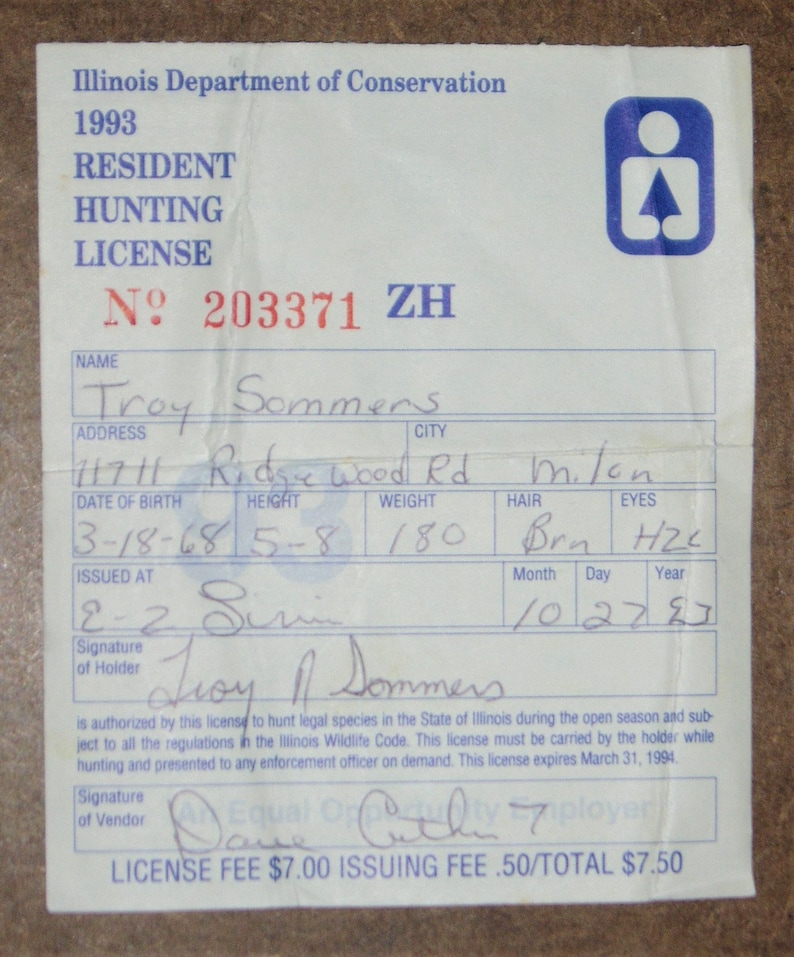 Illinois Department of Conservation
1993
RESIDENT
HUNTING
LICENSE
Nº 203371 ZH
NAME
Troy Sommers
ADDRESS CITY
11711 Ridgewood Rd Milan
DATE OF BIRTH HEIGHT WEIGHT HAIR EYES
3-18-68 5-8 180 Brn HZL
93
ISSUED AT Month Day Year
E-Z 10 27 93
Signature
of Holder
Troy Sommers
is authorized by this license to hunt legal species in the State of Illinois during the open season and sub-
ject to all the regulations in the Illinois Wildlife Code. This license must be carried by the holder while
hunting and presented to any enforcement officer on demand. This license expires March 31, 1994.
Signature
of Vendor
An Equal Opportunity Employer
LICENSE FEE $7.00 ISSUING FEE .50/TOTAL $7.50